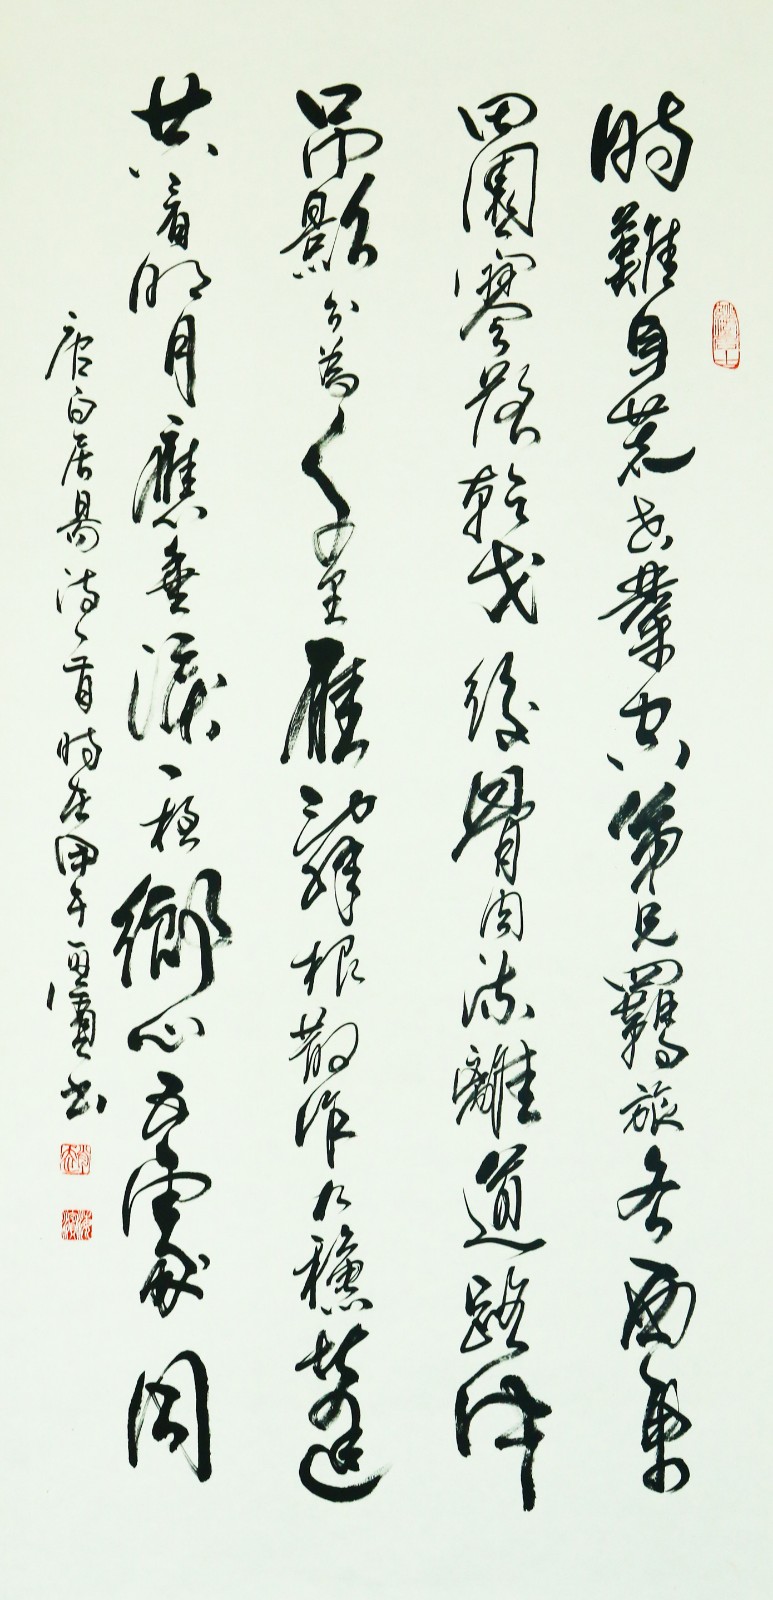 時難年荒世業空弟兄羈旅各西東
田園寥落幹戈後骨肉流離道路中
吊影分為千里雁辭根散作九龝蓬
共看明月應垂淚一夜鄉心五處同
唐白居易詩一首時在甲午書